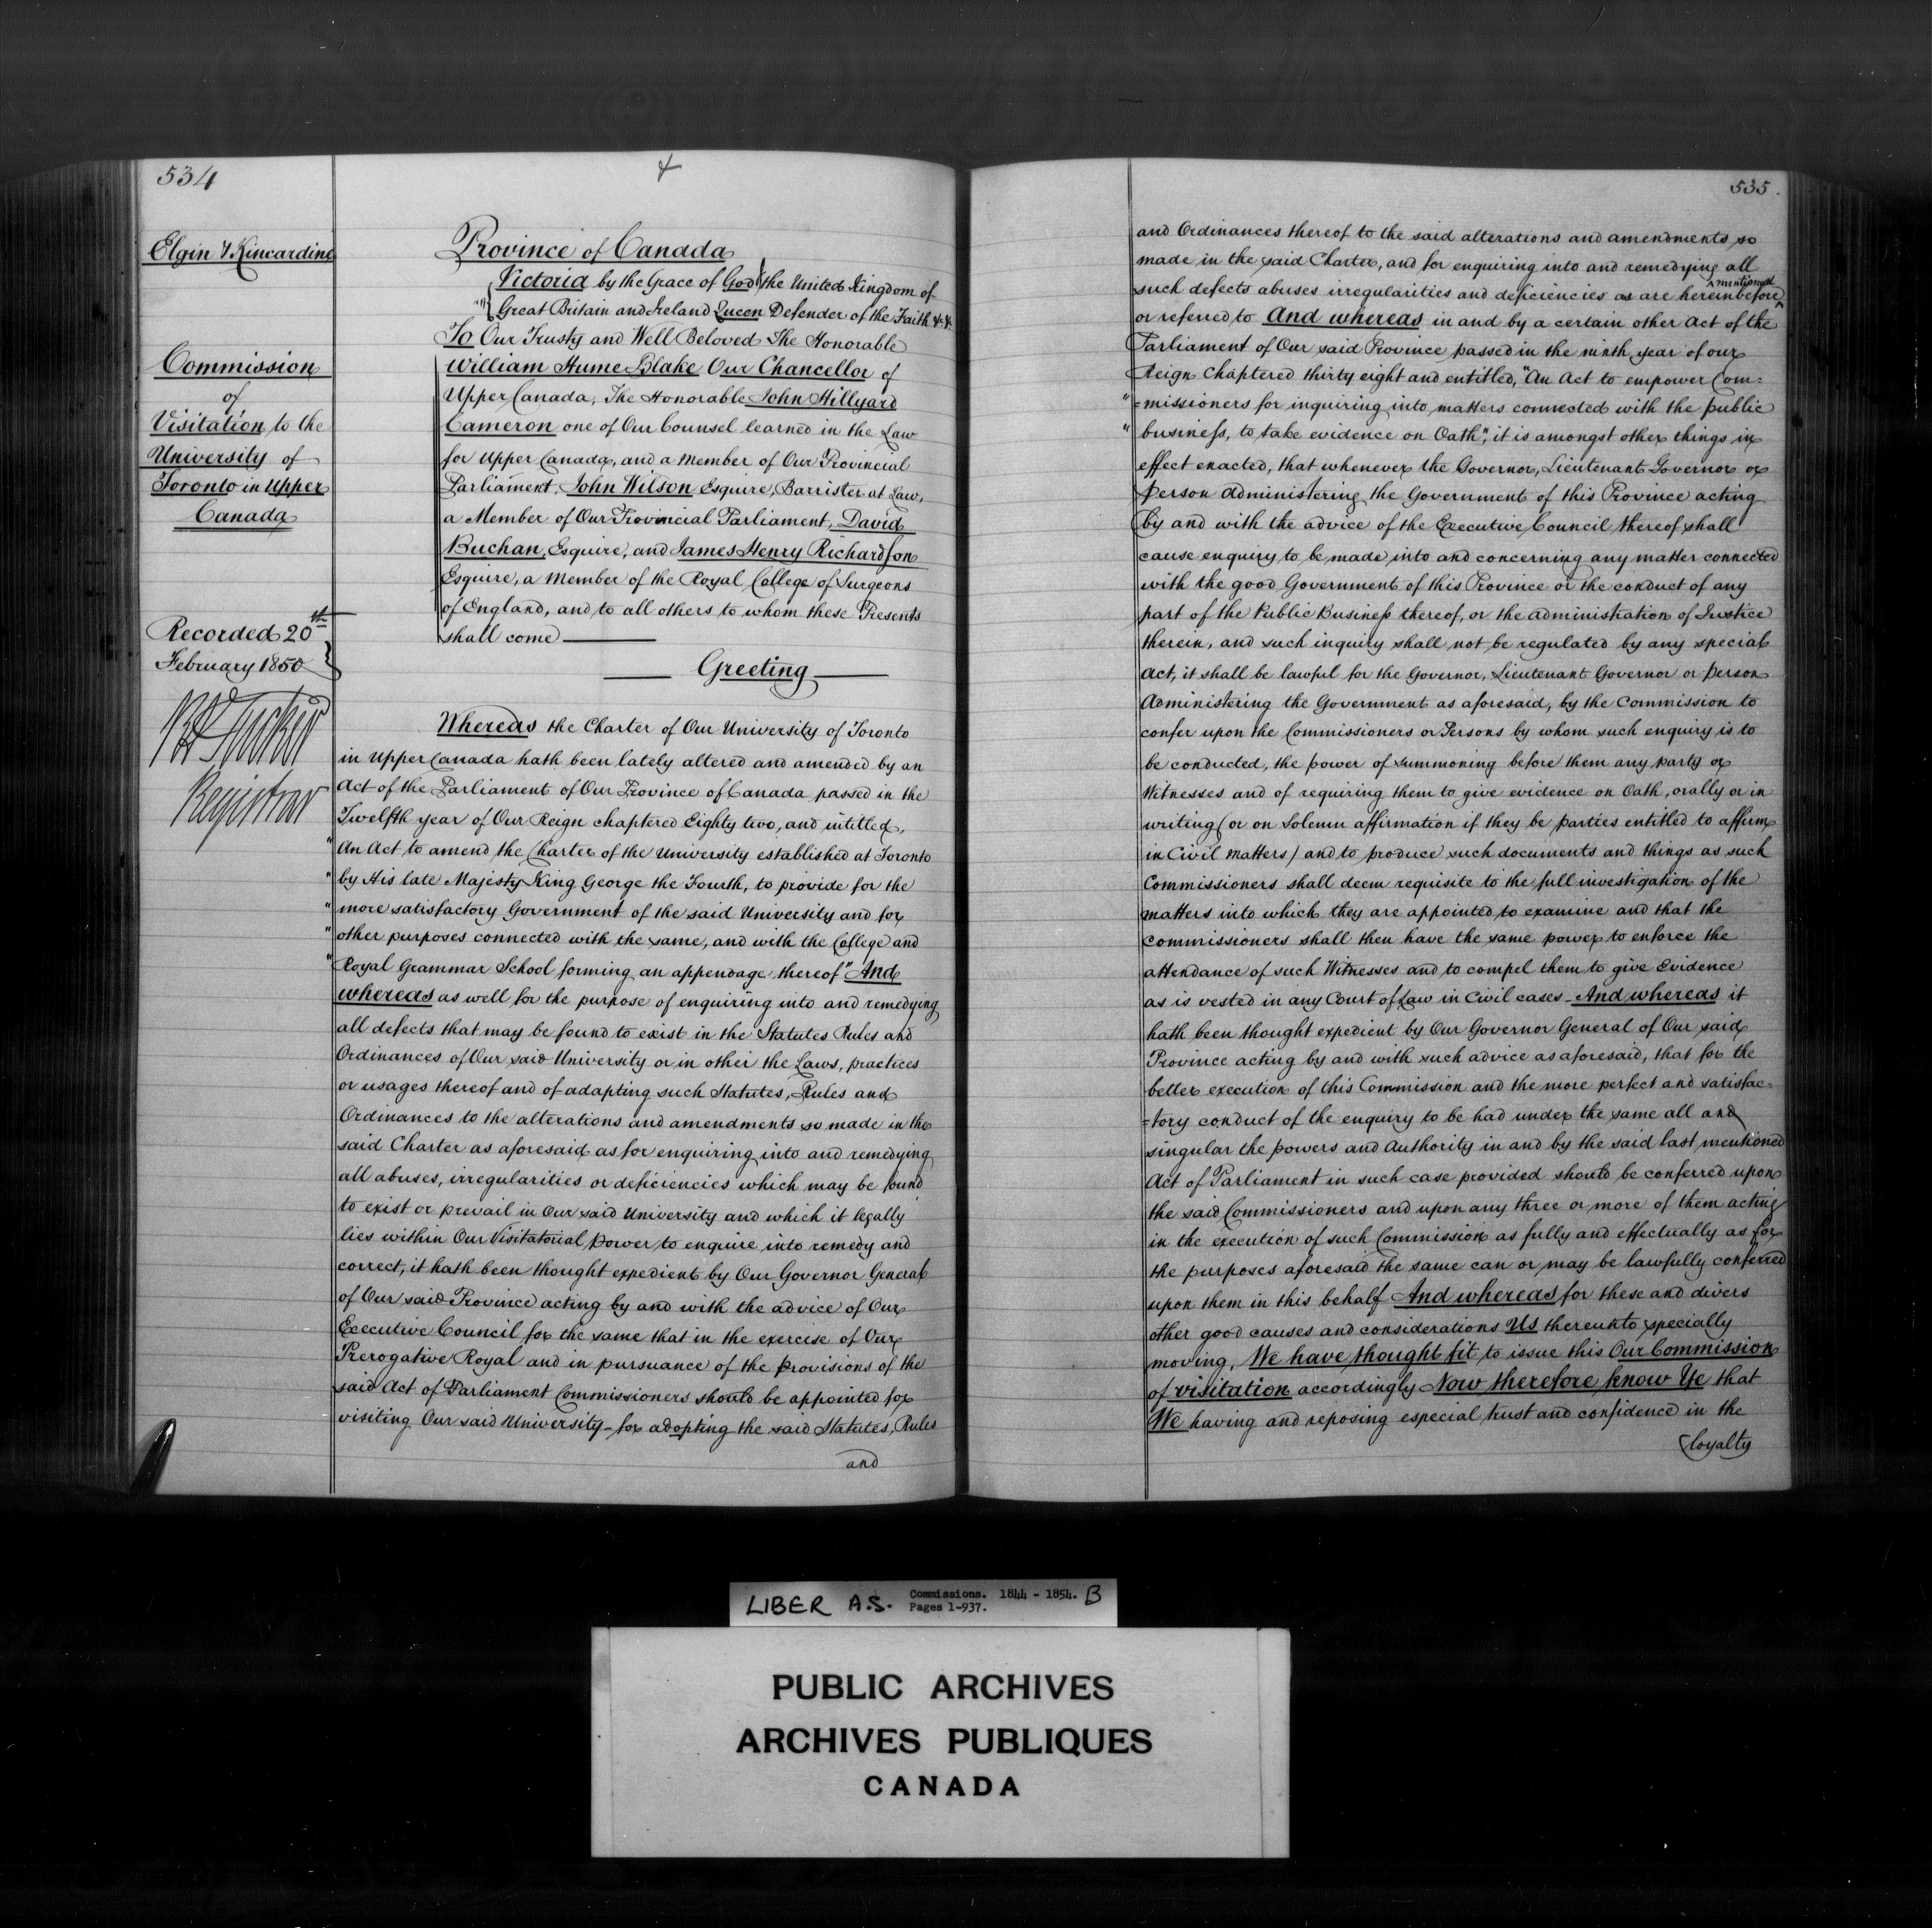 534
Elgin & Kincardine
Commission
of
Visitation to the
University of
Toronto in Upper
Canada
Recorded 20th
February 1850
Registrar
Province of Canada
Victoria by the Grace of God the United Kingdom of
Great Britain and Ireland Queen Defender of the Faith &c &c
To Our Trusty and Well Beloved The Honorable
William Hume Blake Our Chancellor of
Upper Canada, The Honorable John Hillyard
Cameron one of Our Counsel learned in the Law
for Upper Canada, and a Member of Our Provincial
Parliament, John Wilson Esquire, Barrister at Law,
a Member of Our Provincial Parliament, David
Buchan, Esquire, and James Henry Richardson
Esquire, a Member of the Royal College of Surgeons
of England, and to all others to whom these Presents
shall come
Greeting
Whereas the Charter of Our University of Toronto
in Upper Canada hath been lately altered and amended by an
Act of the Parliament of Our Province of Canada passed in the
Twelfth year of Our Reign chaptered Eighty two, and intitled,
"An Act to amend the Charter of the University established at Toronto
"by His late Majesty King George the Fourth, to provide for the
"more satisfactory Government of the said University and for
"other purposes connected with the same, and with the College and
"Royal Grammar School forming an appendage thereof" And
whereas as well for the purpose of enquiring into and remedying
all defects that may be found to exist in the Statutes Rules and
Ordinances of Our said University or in other the Laws, practices
or usages thereof and of adapting such Statutes, Rules and
Ordinances to the alterations and amendments so made in the
said Charter as aforesaid as for enquiring into and remedying
all abuses, irregularities or deficiencies which may be found
to exist or prevail in Our said University and which it legally
lies within Our Visitatorial power to enquire into remedy and
correct, it hath been thought expedient by Our Governor General
of Our said Province acting by and with the advice of Our
Executive Council for the same that in the exercise of Our
Prerogative Royal and in pursuance of the provisions of the
said Act of Parliament Commissioners should be appointed for
visiting Our said University - for adopting the said Statutes, Rules
and
535.
and Ordinances thereof to the said alterations and amendments so
made in the said Charter, and for enquiring into and remedying all
such defects abuses irregularities and deficiencies as are hereinbefore mentioned
or referred to And whereas in and by a certain other Act of the
Parliament of Our said Province passed in the ninth year of our
Reign Chaptered thirty eight and entitled, "An Act to empower Com=
"=missioners for inquiring into matters connected with the public
"business, to take evidence on Oath", it is amongst other things in
effect enacted, that whenever the Governor, Lieutenant Governor or
Person administering the Government of this Province acting
by and with the advice of the Executive Council thereof shall
cause enquiry to be made into and concerning any matter connected
with the good Government of this Province or the conduct of any
part of the Public Business thereof, or the administration of Justice
therein, and such inquiry shall not be regulated by any special
Act, it shall be lawful for the Governor, Lieutenant Governor or person
Administering the Government as aforesaid, by the Commission to
confer upon the Commissioners or Persons by whom such enquiry is to
be conducted, the power of summoning before them any party or
Witnesses and of requiring them to give evidence on Oath, orally or in
writing (or on Solemn affirmation if they be parties entitled to affirm
in Civil matters) and to produce such documents and things as such
Commissioners shall deem requisite to the full investigation of the
matters into which they are appointed to examine and that the
Commissioners shall then have the same power to enforce the
attendance of such Witnesses and to compel them to give Evidence
as is vested in any Court of Law in Civil cases - And whereas it
hath been thought expedient by Our Governor General of Our said
Province acting by and with such advice as aforesaid, that for the
better execution of this Commission and the more perfect and satisfac=
=tory conduct of the enquiry to be had under the same all and
singular the powers and Authority in and by the said last mentioned
Act of Parliament in such case provided should be conferred upon
the said Commissioners and upon any three or more of them acting
in the execution of such Commission as fully and effectually as for
the purposes aforesaid the same can or may be lawfully conferred
upon them in this behalf And whereas for these and divers
other good causes and considerations Us thereunto specially
moving, We have thought fit to issue this Our Commission
of visitation accordingly Now therefore know Ye that
We having and reposing especial trust and confidence in the
loyalty
LIBER A.S. Commissions. 1844 - 1854. B
Pages 1-937.
PUBLIC ARCHIVES
ARCHIVES PUBLIQUES
CANADA